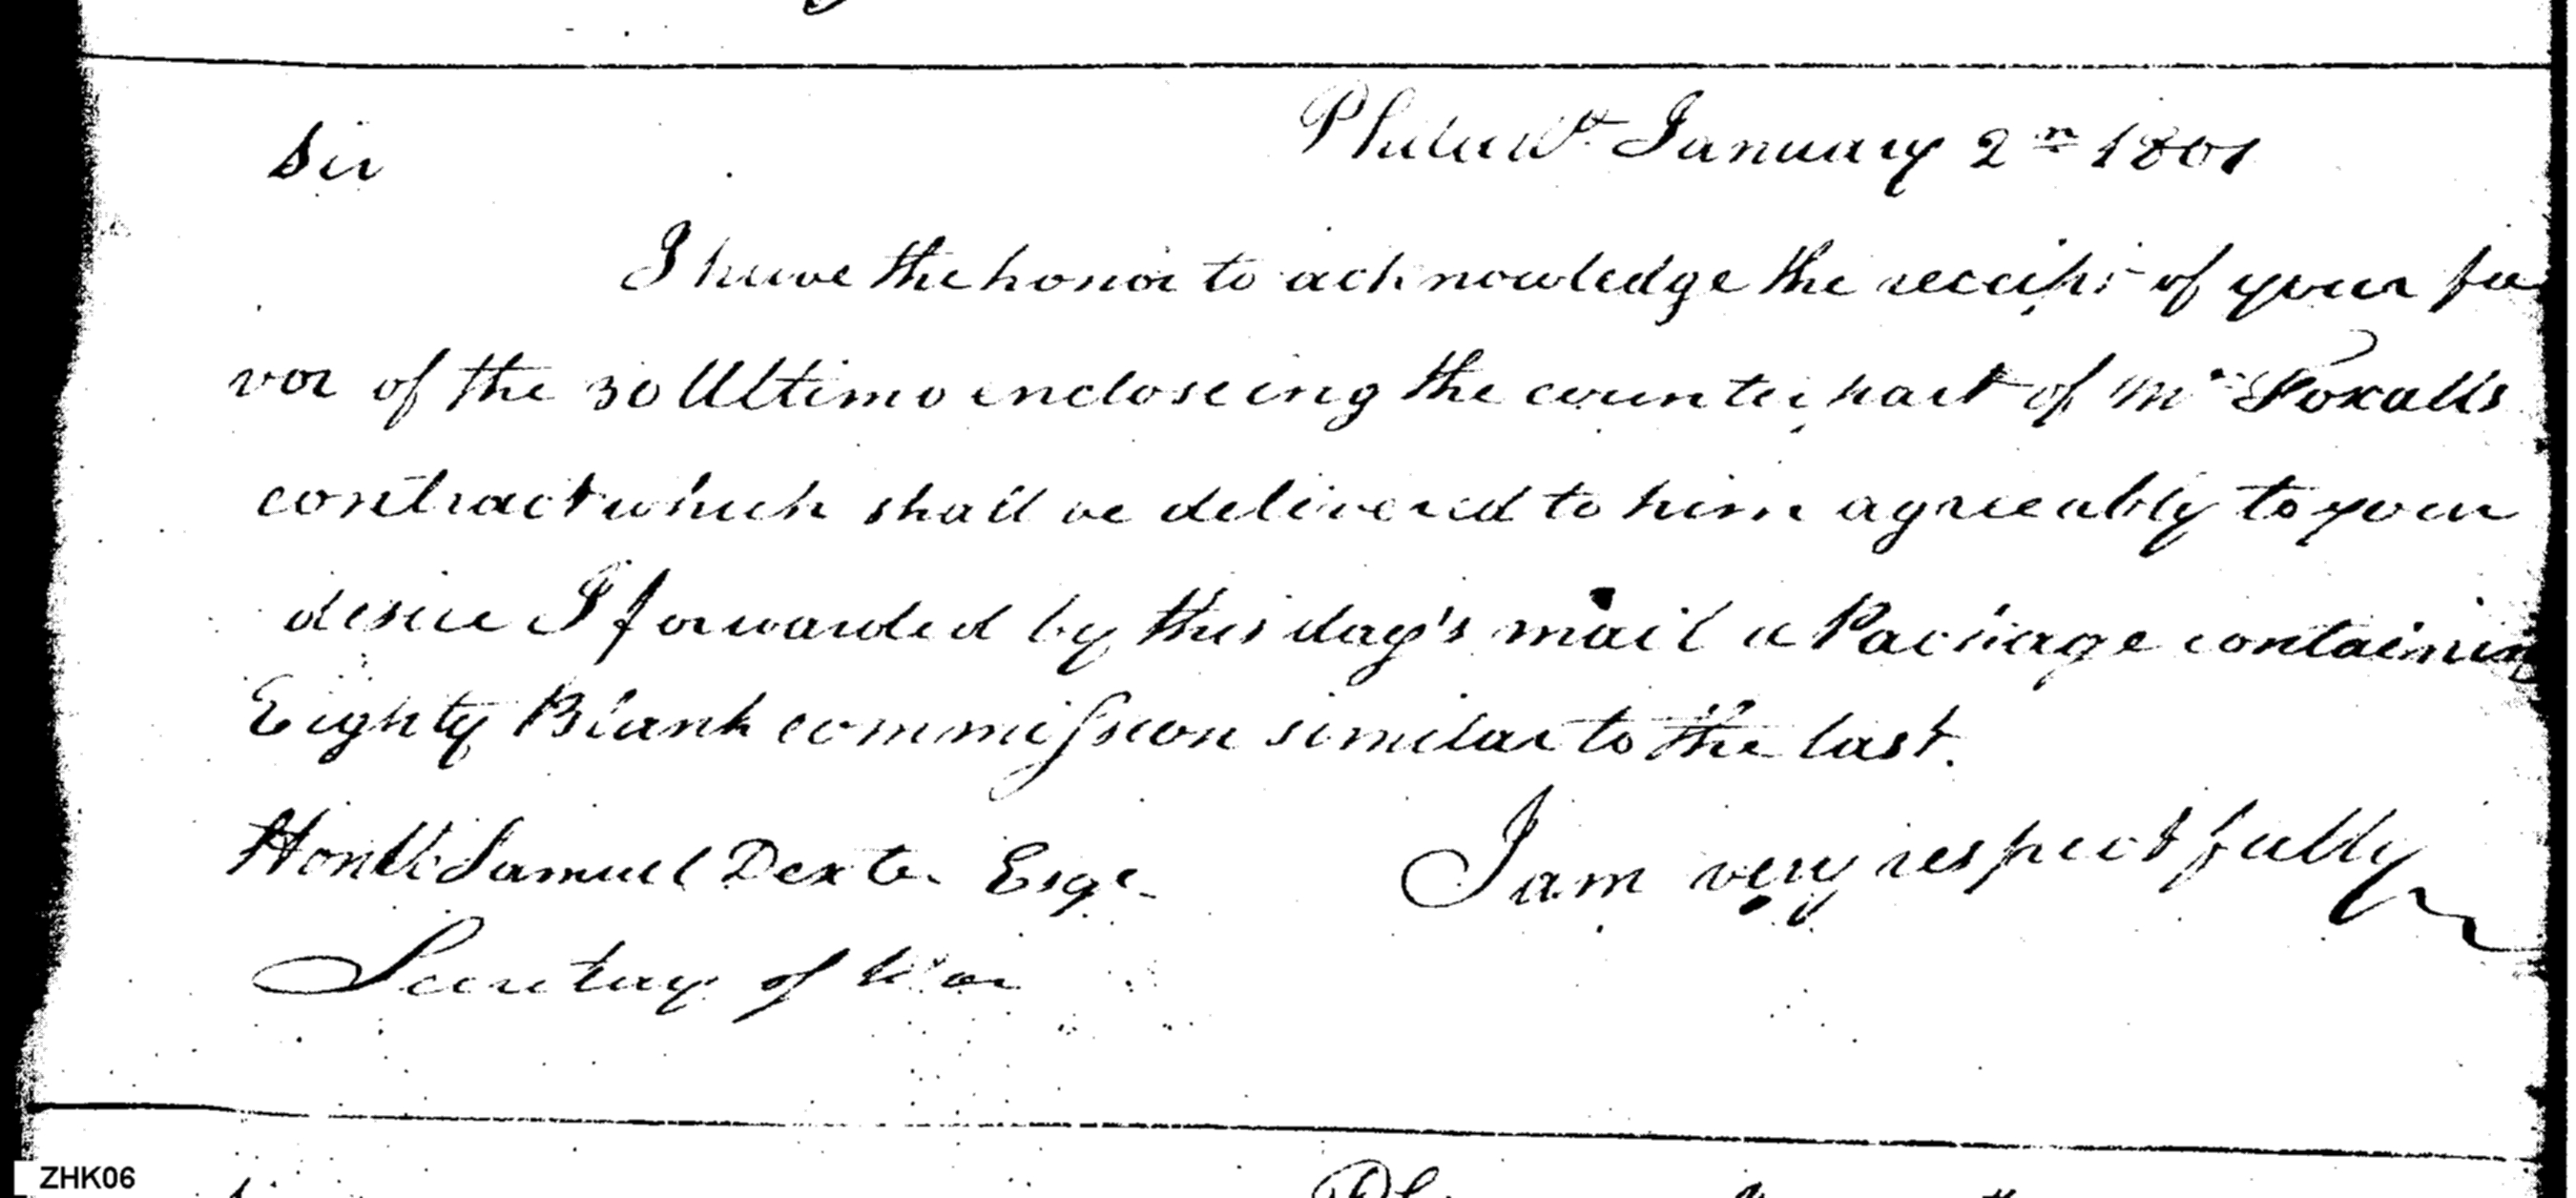 Philad.ª January 2.ⁿ 1801
Sir
I have the honor to acknowledge the receipt of your fa
vor of the 30 Ultimo encloseing the counterpart of Mr Foxalls
contract which shall be delivered to him agreeably to your
desire I forwarded by this day's mail a Package containing
Eighty Blank commission similar to the last.
Honble Samuel Dexter Esqr
I am very respectfully
Secretary of War
ZHK06